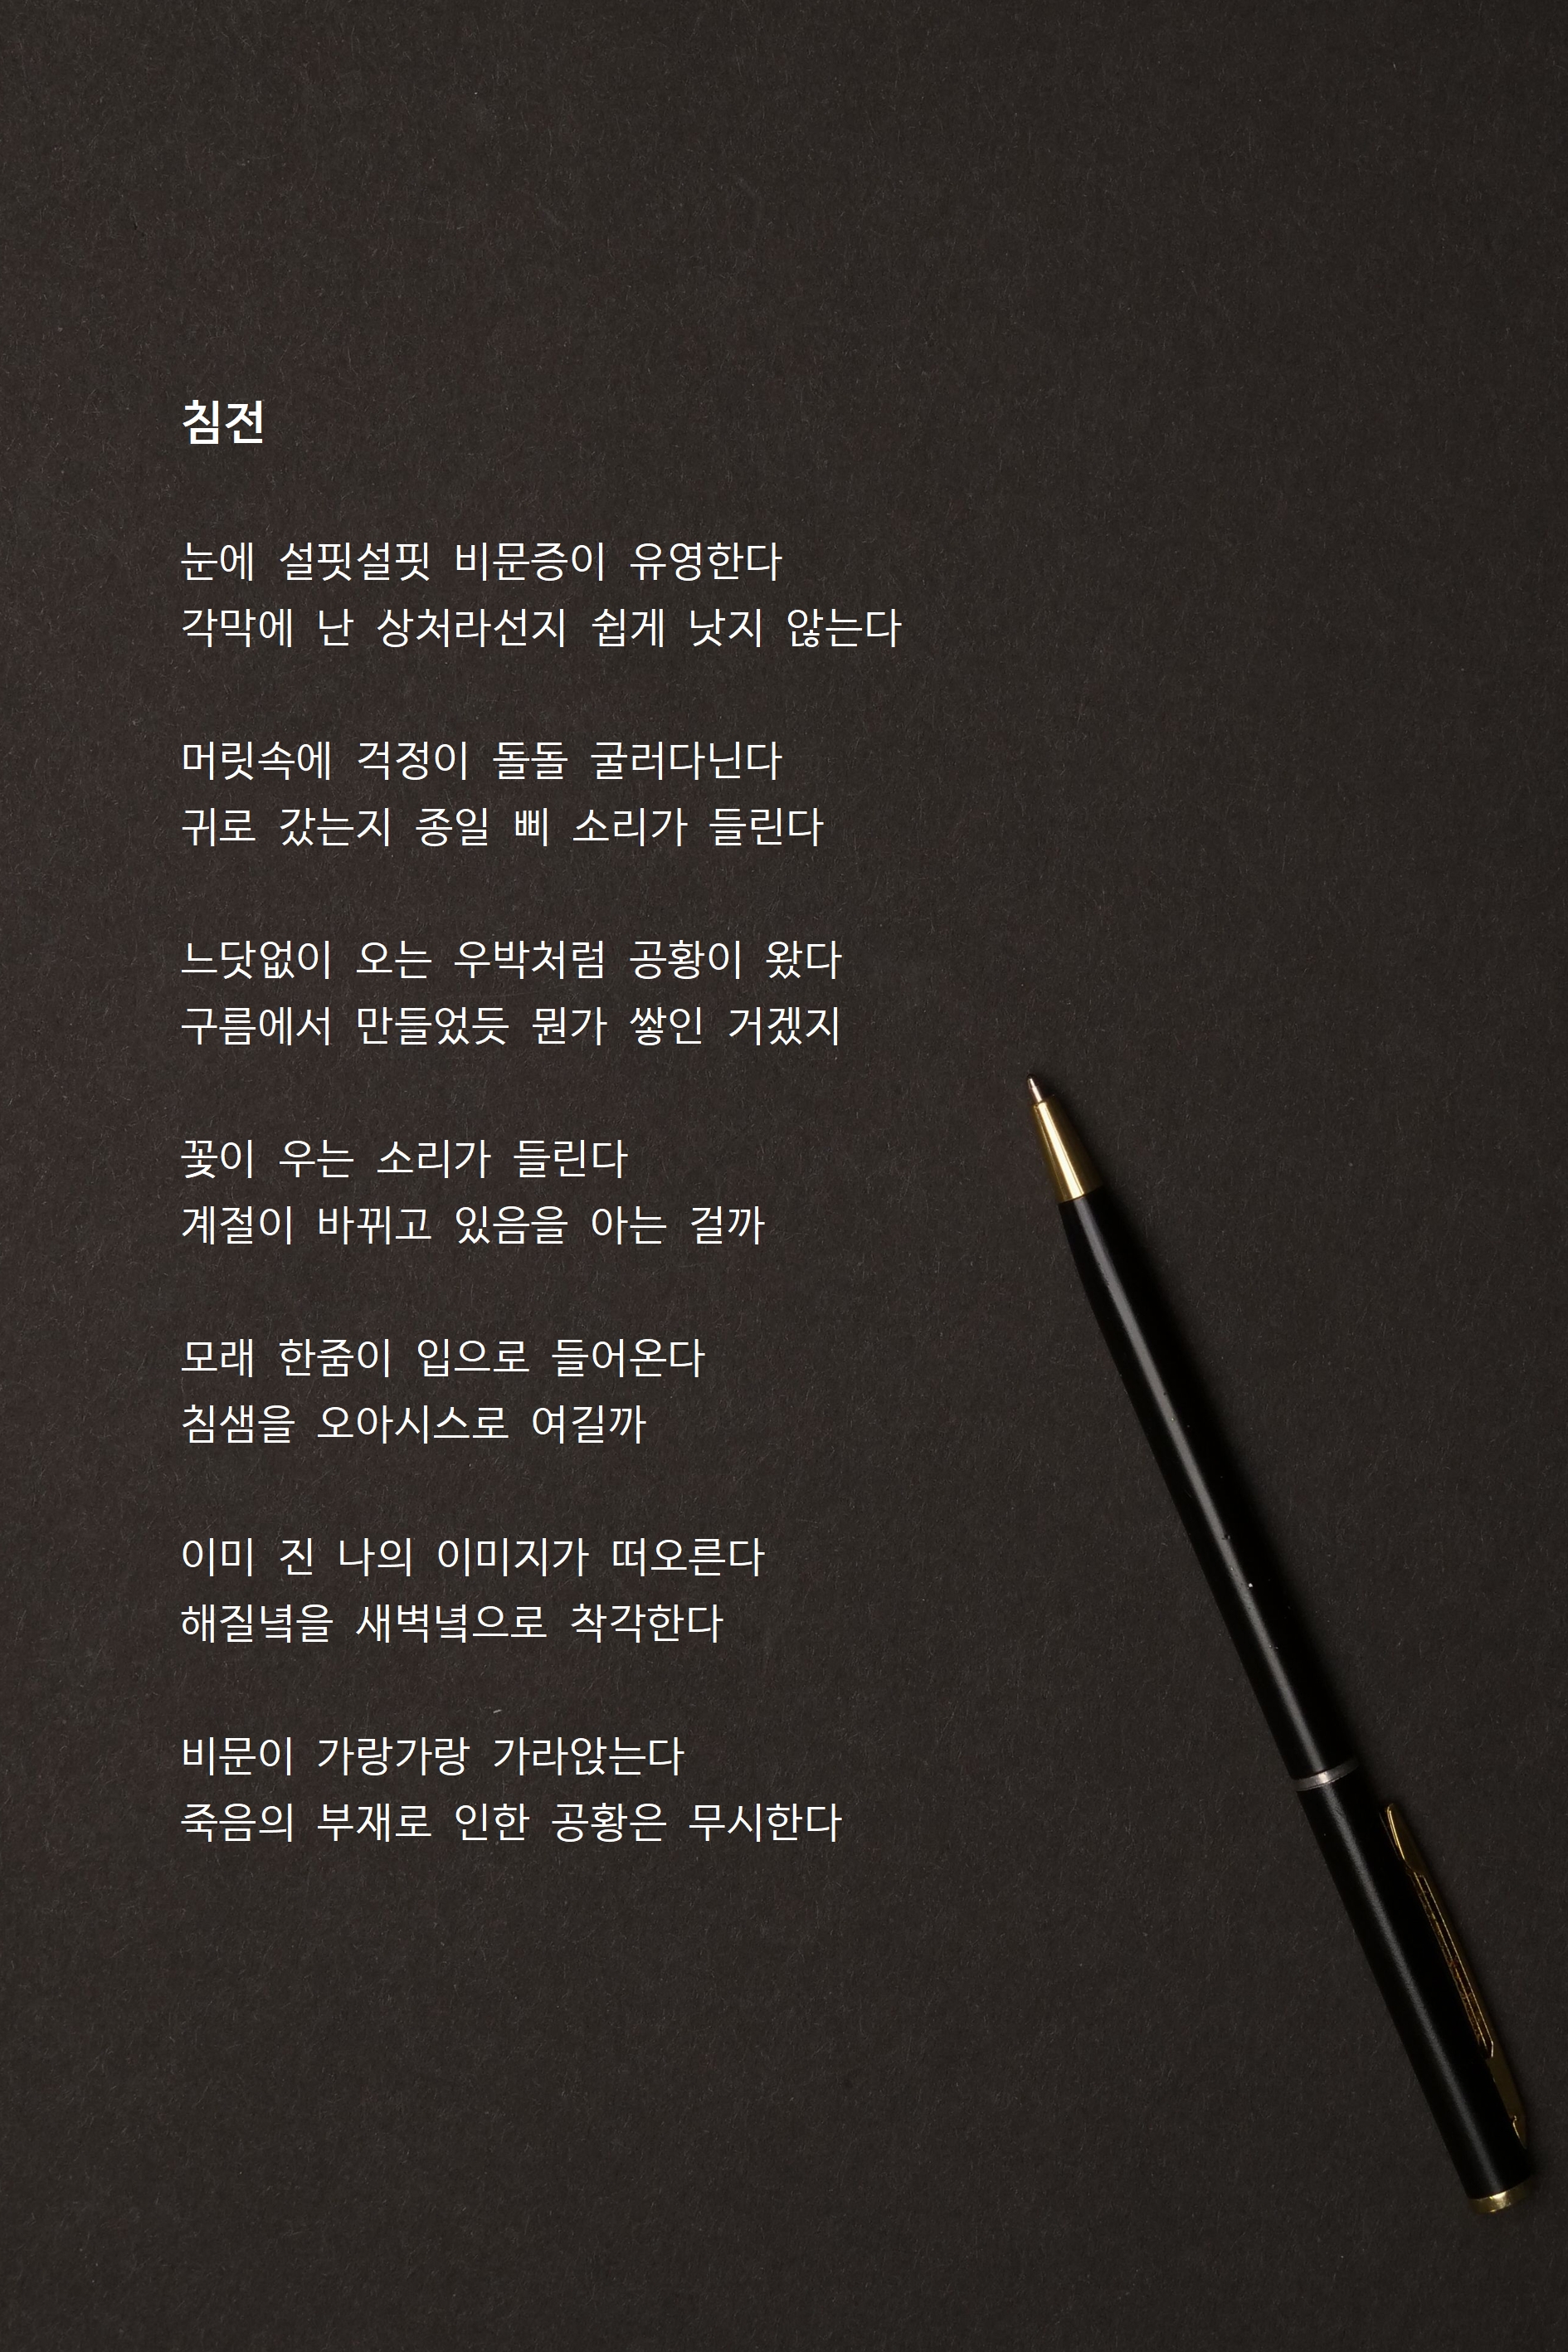 침전
눈에 설핏설핏 비문증이 유영한다
각막에 난 상처라선지 쉽게 낫지 않는다
머릿속에 걱정이 돌돌 굴러다닌다
귀로 갔는지 종일 삐 소리가 들린다
느닷없이 오는 우박처럼 공황이 왔다
구름에서 만들었듯 뭔가 쌓인 거겠지
꽃이 우는 소리가 들린다
계절이 바뀌고 있음을 아는 걸까
모래 한줌이 입으로 들어온다
침샘을 오아시스로 여길까
이미 진 나의 이미지가 떠오른다
해질녘을 새벽녘으로 착각한다
비문이 가랑가랑 가라앉는다
죽음의 부재로 인한 공황은 무시한다